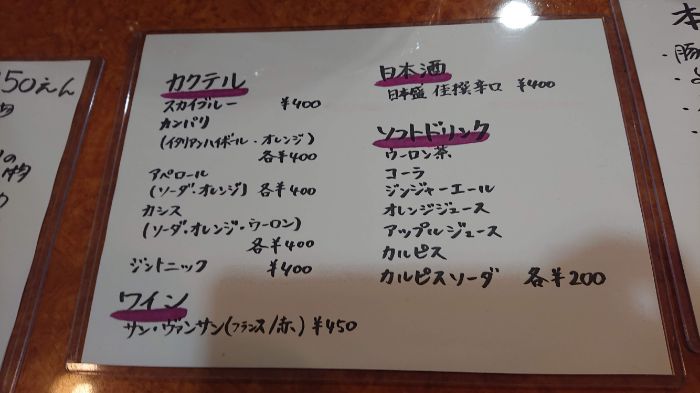 50えん
カクテル
スカイブルー ¥400
カンパリ
(イタリアンハイボール・オレンジ)
各¥400
アペロール
(ソーダ・オレンジ) 各¥400
カシス
(ソーダ・オレンジ・ウーロン)
各¥400
ジントニック ¥400
ワイン
サン・ヴァンサン(フランス/赤) ¥450
日本酒
日本盛 佳撰辛口 ¥400
ソフトドリンク
ウーロン茶
コーラ
ジンジャーエール
オレンジジュース
アップルジュース
カルピス
カルピスソーダ 各¥200
本
・豚